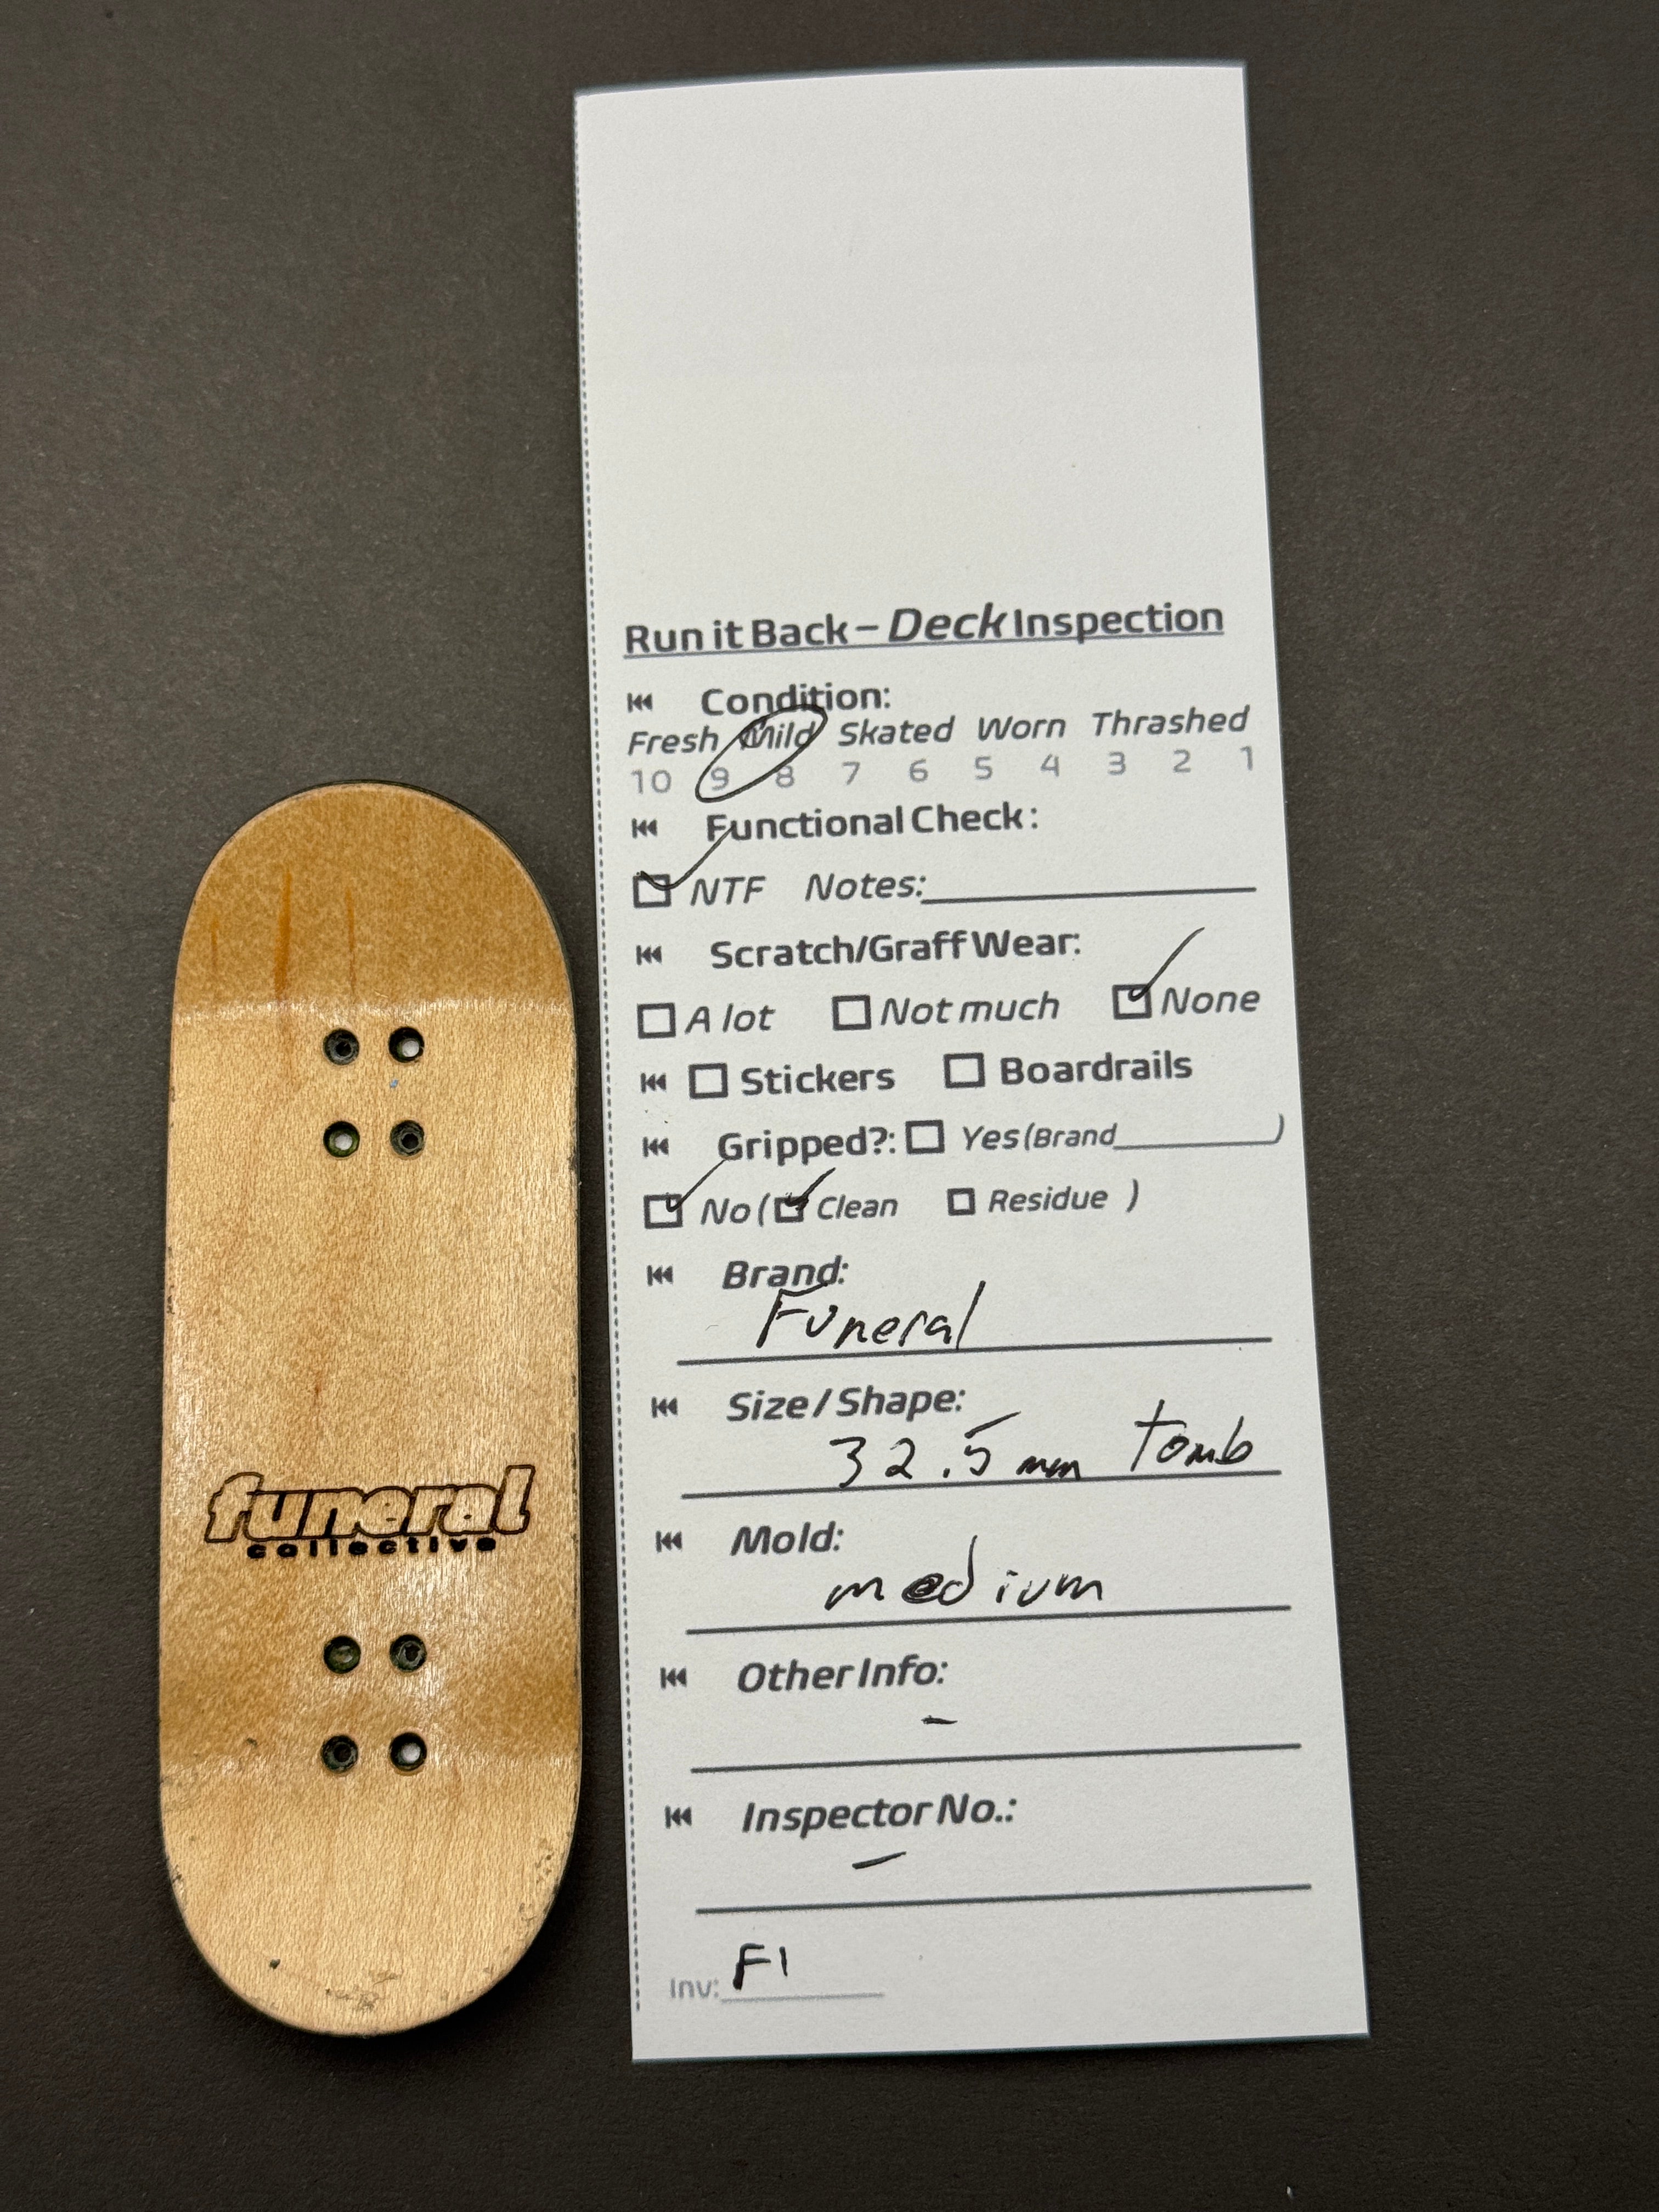 Run it Back – Deck Inspection
Condition:
Fresh Mild Skated Worn Thrashed
10 9 8 7 6 5 4 3 2 1
Functional Check:
NTF Notes:
Scratch/Graff Wear:
A lot Not much None
Stickers Boardrails
Gripped?: Yes (Brand )
No ( Clean Residue )
Brand:
Funeral
Size / Shape:
32.5mm Tomb
Mold:
medium
Other Info:
-
Inspector No.:
-
Inv: F1
funeral
collective